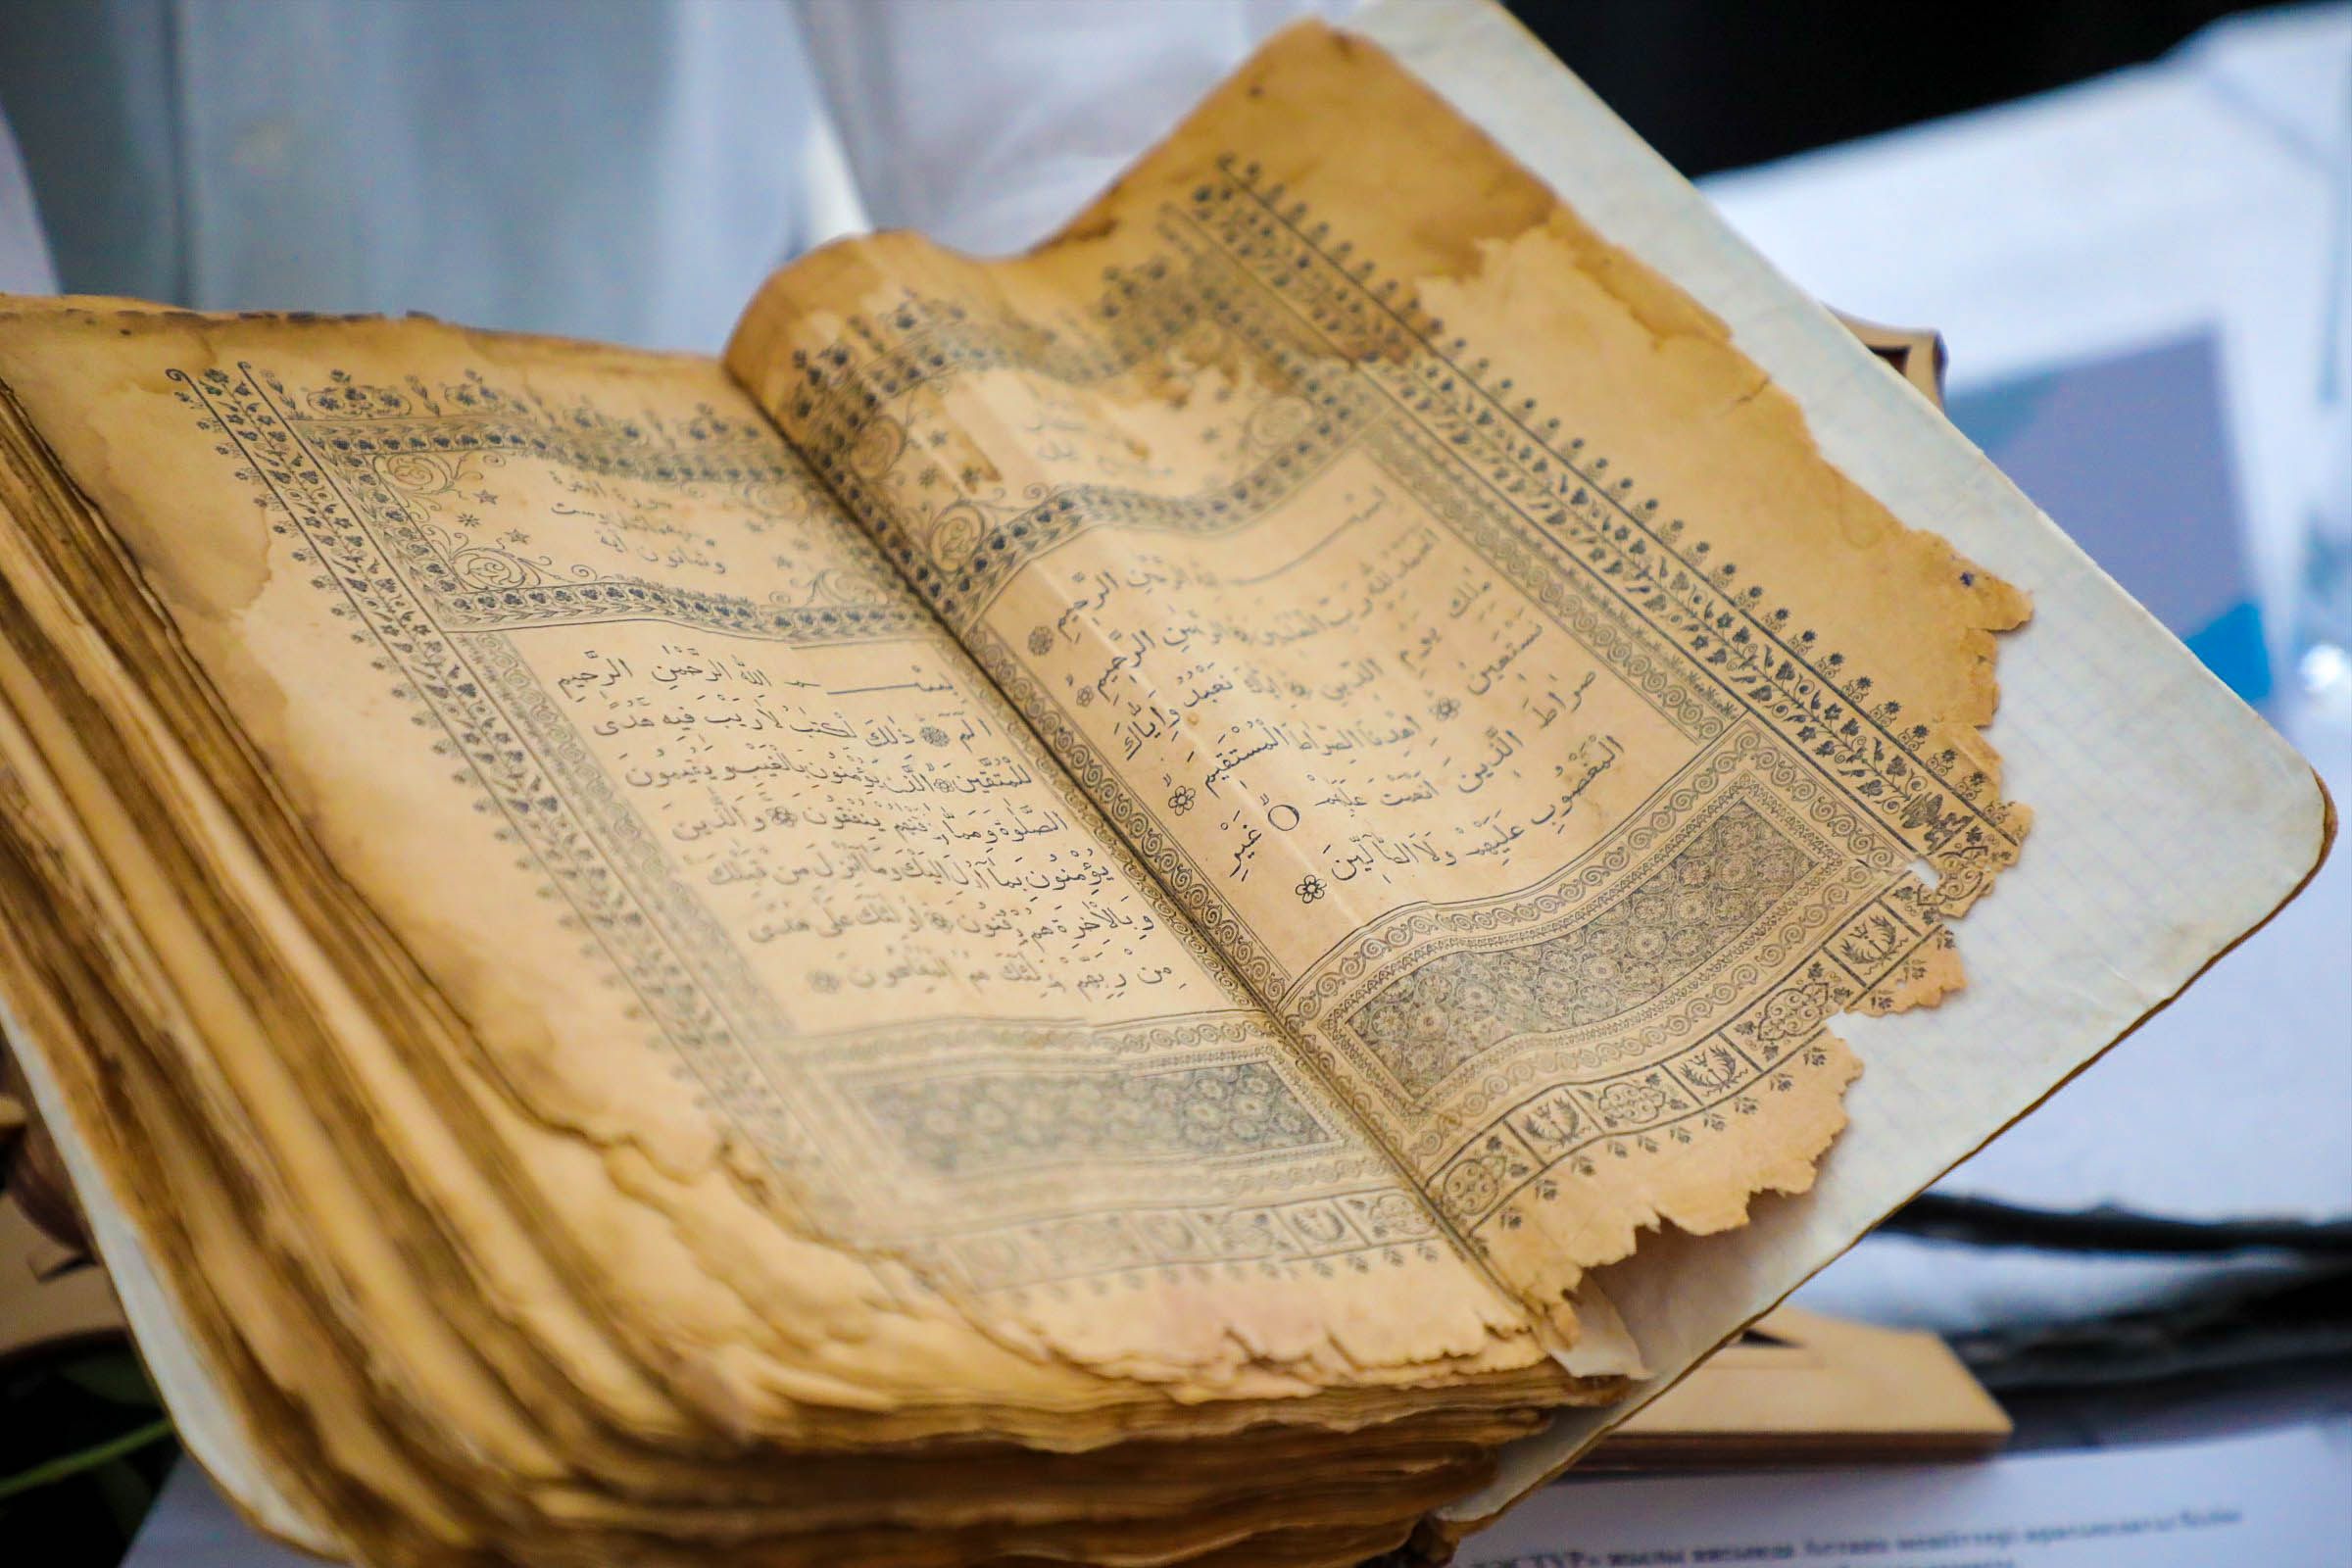 بسم الله الرحمن الرحيم
الحمد لله رب العلمين الرحمن الرحيم
ملك يوم الدين اياك نعبد واياك
نستعين اهدنا الصراط المستقيم
صراط الذين انعمت عليهم غير
المغضوب عليهم ولا الضالين
سورة البقرة
وثمانون آية
بسم الله الرحمن الرحيم
الم ذلك الكتب لا ريب فيه هدى
للمتقين الذين يؤمنون بالغيب ويقيمون
الصلوة ومما رزقنهم ينفقون والذين
يؤمنون بما انزل اليك وما انزل من قبلك
وبالآخرة هم يوقنون اولئك على هدى
من ربهم واولئك هم المفلحون